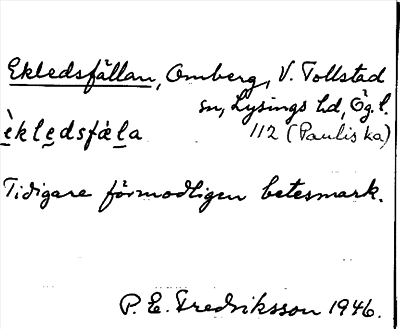 Ekledsfällan, Omberg, V. Tollstad
sn, Lysings hd, Ög. l.
èkle̲dsfä́l̲a 112 (Pauliska)
Tidigare förmodligen betesmark.
P. E. Fredriksson 1946.